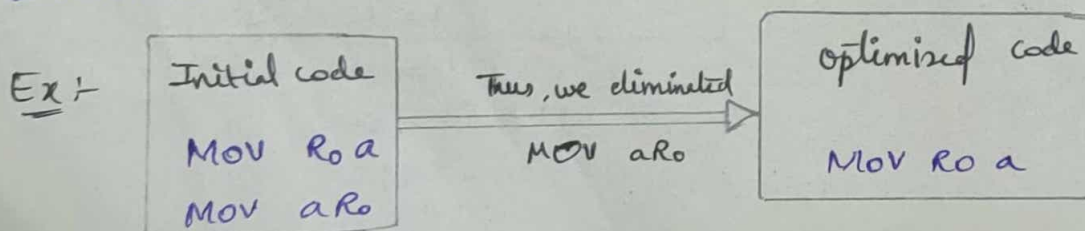 Ex :-
Initial code
MOV R₀ a
MOV a R₀
Thus, we eliminated
MOV a R₀
optimized code
MOV R₀ a